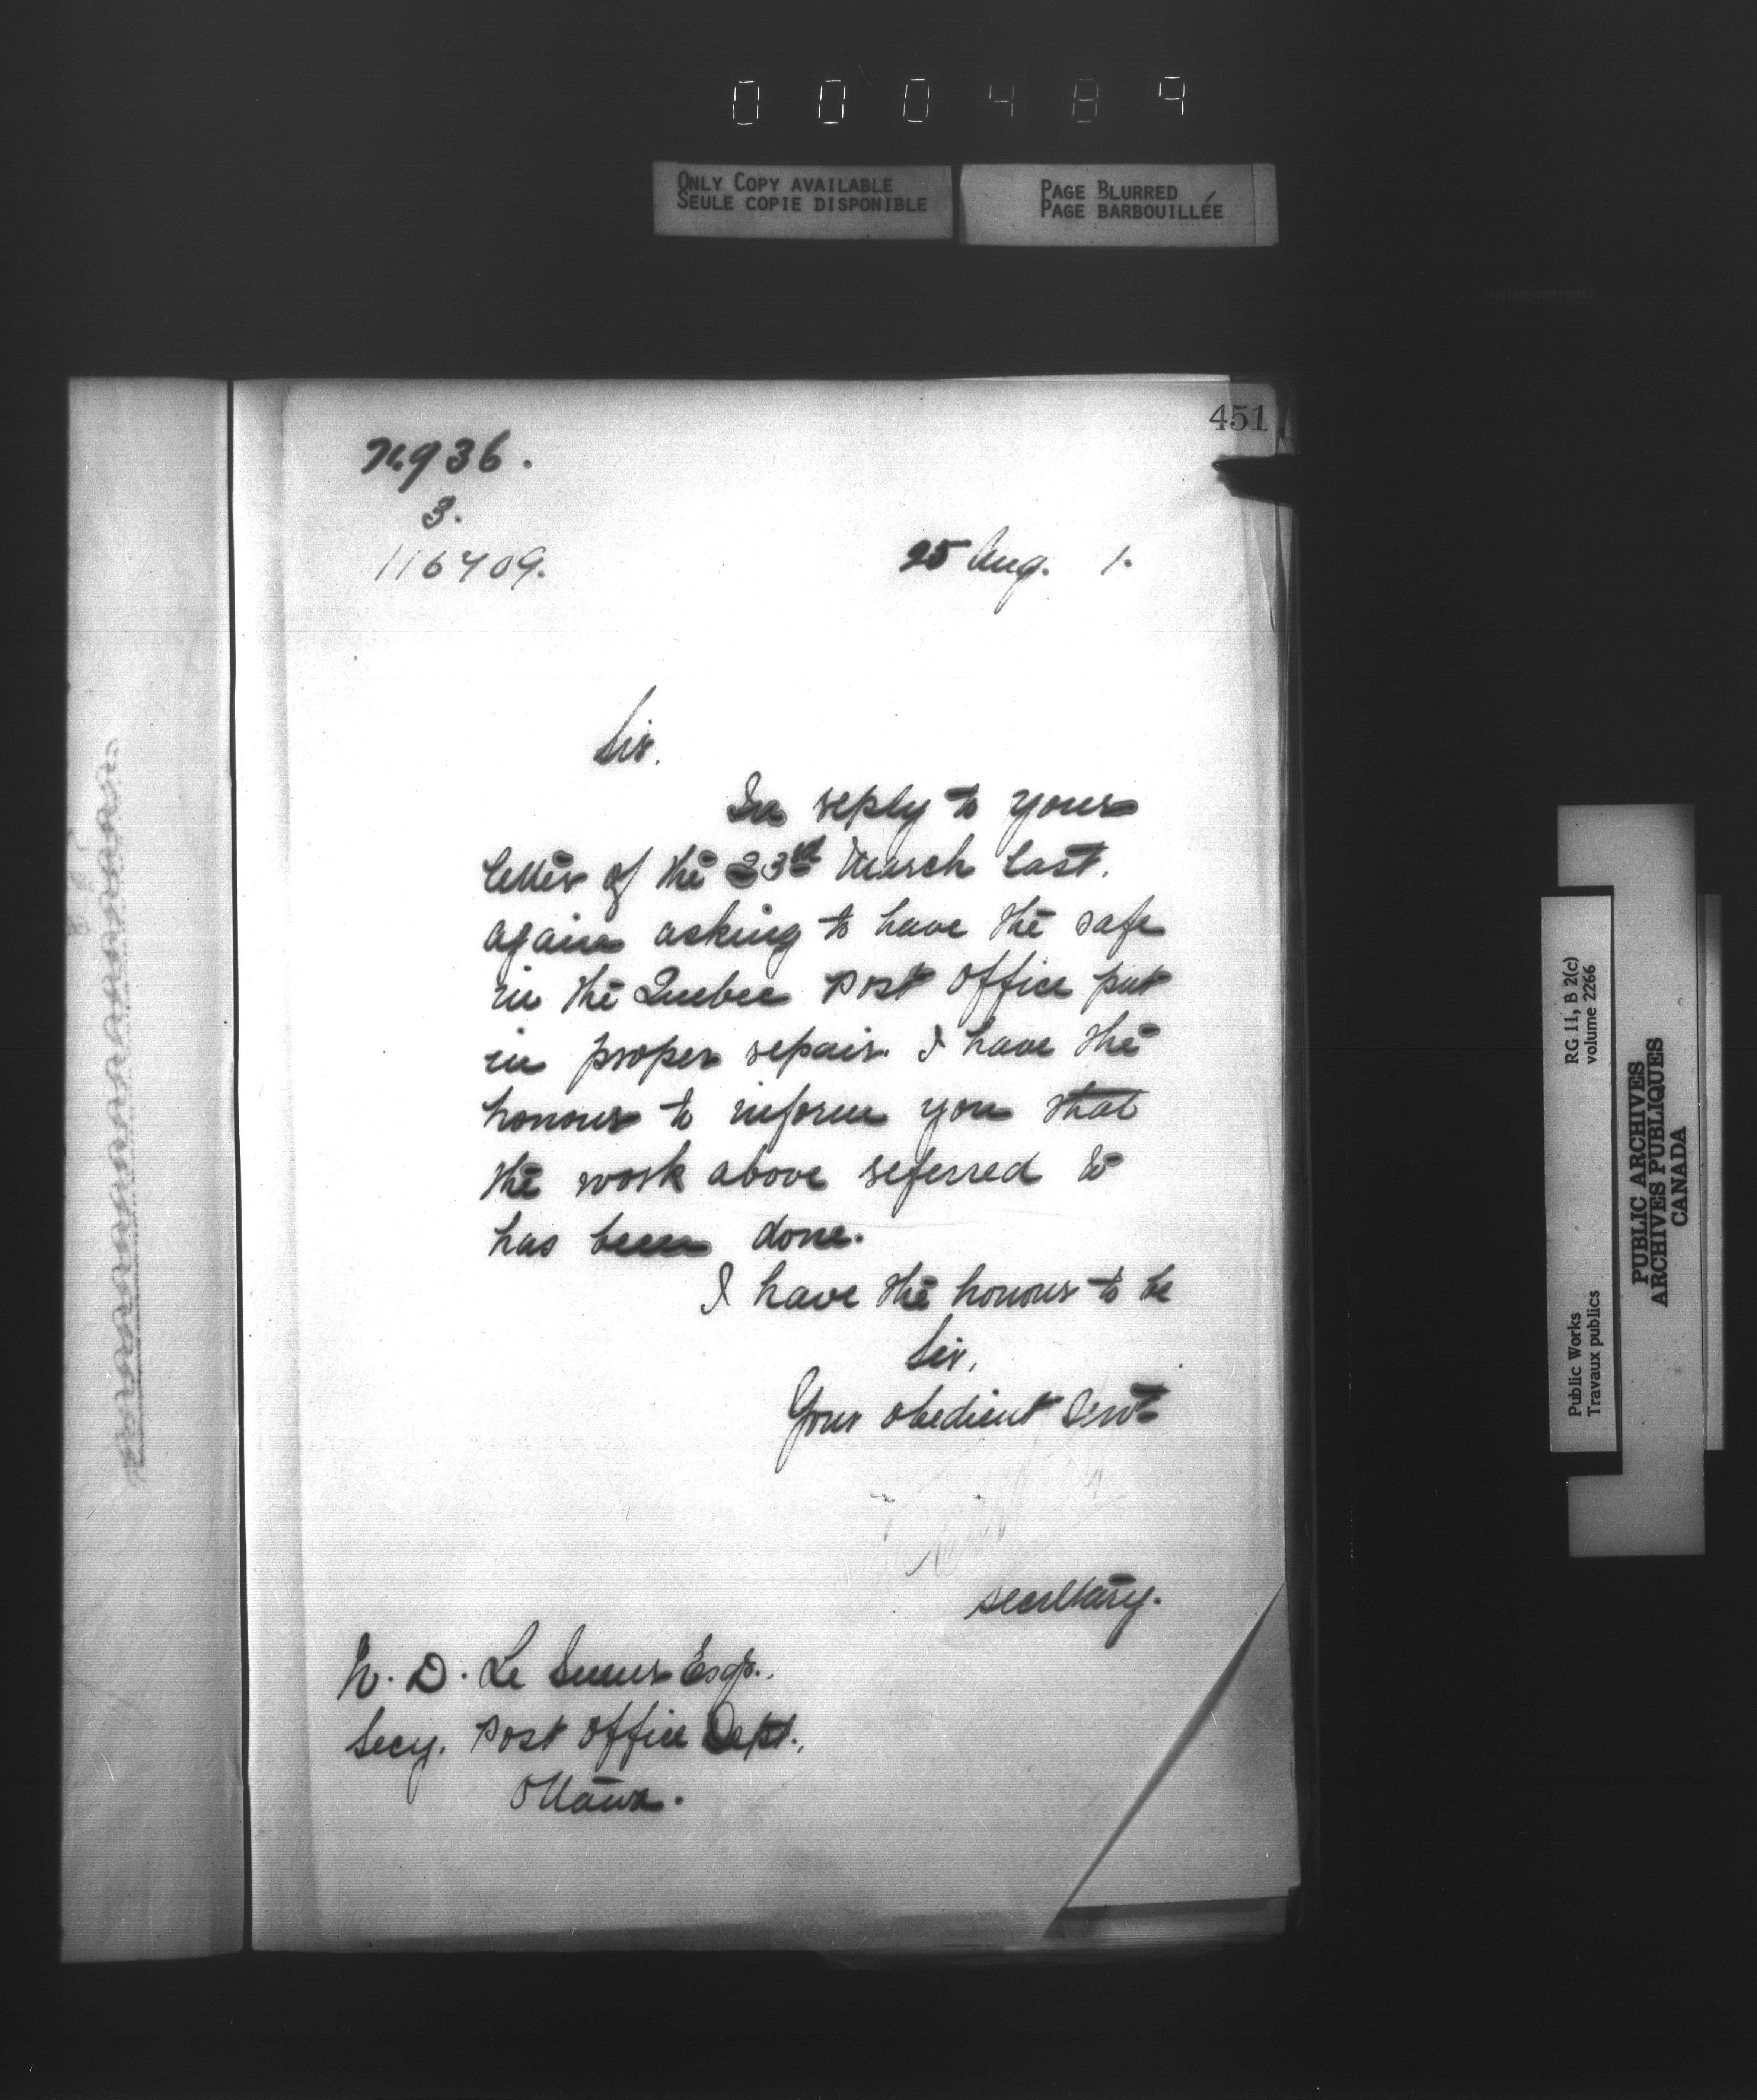 000489
ONLY COPY AVAILABLE
SEULE COPIE DISPONIBLE
PAGE BLURRED
PAGE BARBOUILLÉE
451
936.
3.
116409.
25 Aug. 1.
Sir.
In reply to your
letter of the 23rd March last.
again asking to have the safe
in the Quebec Post Office put
in proper repair. I have the
honour to inform you that
the work above referred to
has been done.
I have the honour to be
Sir,
Your obedient Servt
secretary.
W. D. Le Sueur Esqr.,
Secy. Post Office Dept.,
Ottawa.
Public Works
Travaux publics
RG 11, B 2(c)
volume 2266
PUBLIC ARCHIVES
ARCHIVES PUBLIQUES
CANADA